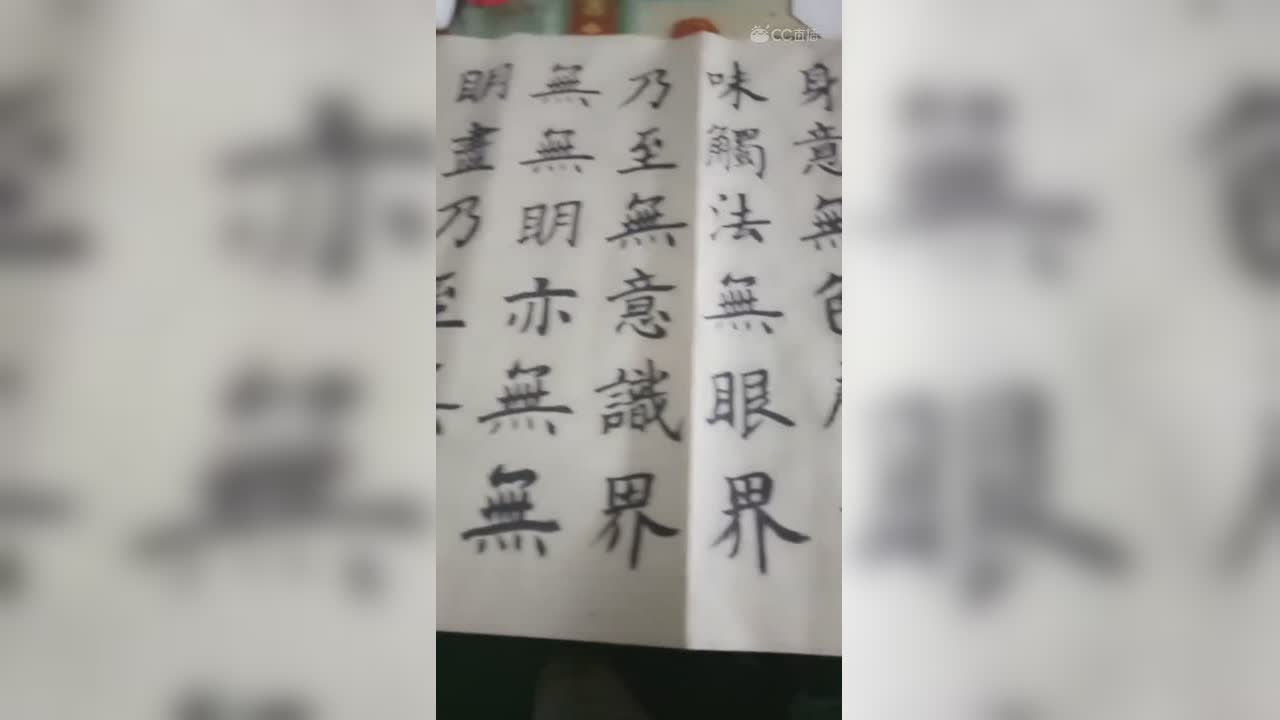 身意無色
味觸法無眼界
乃至無意識界
無無明亦無無
明盡乃至無
CC直播